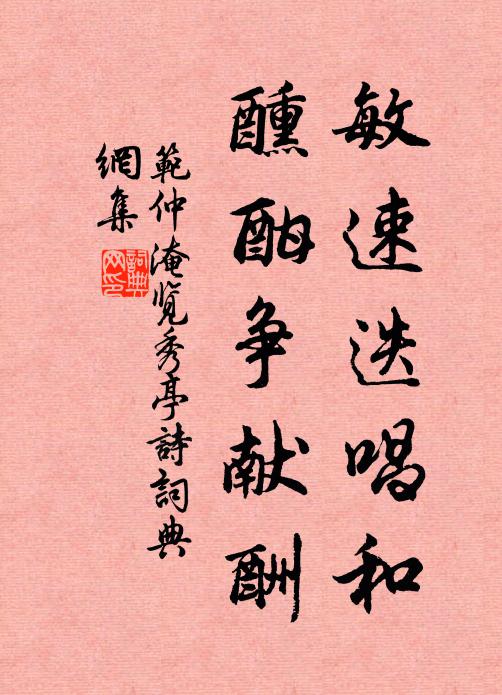 敏速迭唱和
醺酣争献酬
範仲淹览秀亭詩詞典
網集
詞典网印